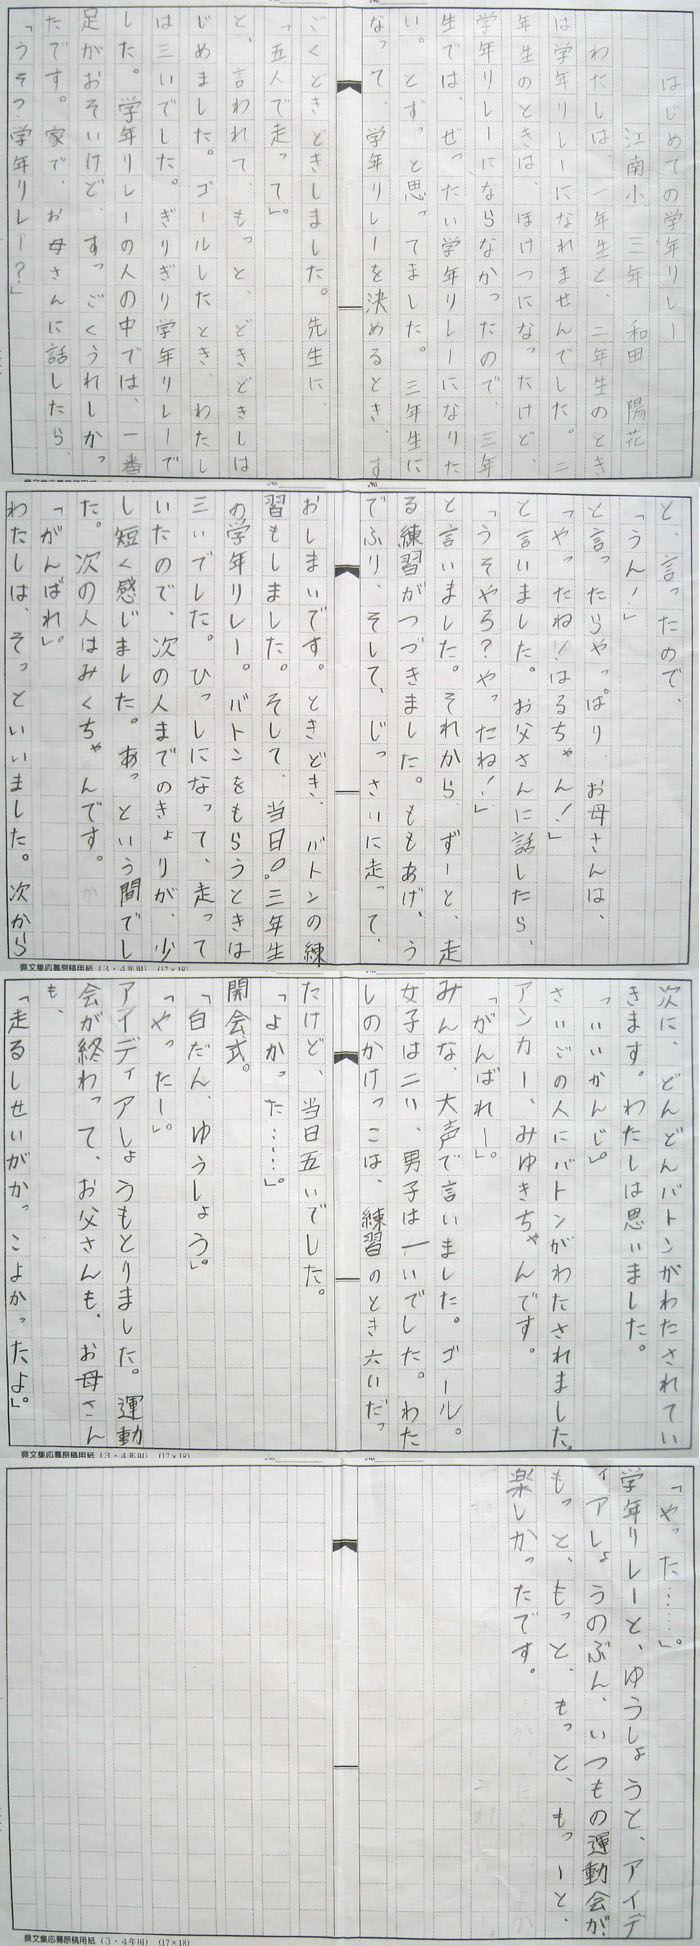 はじめての学年リレー
江南小　三年　和田　陽花
わたしは、一年生と、二年生のとき
は学年リレーになれませんでした。二
年生のときは、ほけつになったけど、
学年リレーにならなかったので、三年
生では、ぜったい学年リレーになりた
い。とずっと思ってました。三年生に
なって、学年リレーを決めるとき、す
ごくどきどきしました。先生に、
「五人で走って」。
と、言われて、もっと、どきどきしは
じめました。ゴールしたとき、わたし
は三いでした。ぎりぎり学年リレーで
した。学年リレーの人の中では、一番
足がおそいけど、すっごくうれしかっ
たです。家で、お母さんに話したら、
「うそ？学年リレー？」
と、言ったので、
「うん！」
と言ったらやっぱり、お母さんは、
「やったね！はるちゃん！」
と言いました。お父さんに話したら、
「うそやろ？やったね！」
と言いました。それから、ずーと、走
る練習がつづきました。ももあげ、う
でふり、そして、じっさいに走って、
おしまいです。ときどき、バトンの練
習もしました。そして、当日。三年生
の学年リレー。バトンをもらうときは
三いでした。ひっしになって、走って
いたので、次の人までのきょりが、少
し短く感じました。あっという間でし
た。次の人はみくちゃんです。
「がんばれ」。
わたしは、そっといいました。次から
次に、どんどんバトンがわたされてい
きます。わたしは思いました。
「いいかんじ」。
さいごの人にバトンがわたされました。
アンカー、みゆきちゃんです。
「がんばれー」。
みんな、大声で言いました。ゴール。
女子は二い、男子は一いでした。わた
しのかけっこは、練習のとき六いだっ
たけど、当日五いでした。
「よかった……」。
閉会式。
「白だん、ゆうしょう」。
「やったー」。
アイディアしょうもとりました。運動
会が終わって、お父さんも、お母さん
も、
「走るしせいがかっこよかったよ」。
「やった……」。
学年リレーと、ゆうしょうと、アイデ
ィアしょうのぶん、いつもの運動会が、
もっと、もっと、もっと、もっーと、
楽しかったです。
県文集応募原稿用紙（3・4年用）（17×18）
県文集応募原稿用紙（3・4年用）（17×18）
県文集応募原稿用紙（3・4年用）（17×18）